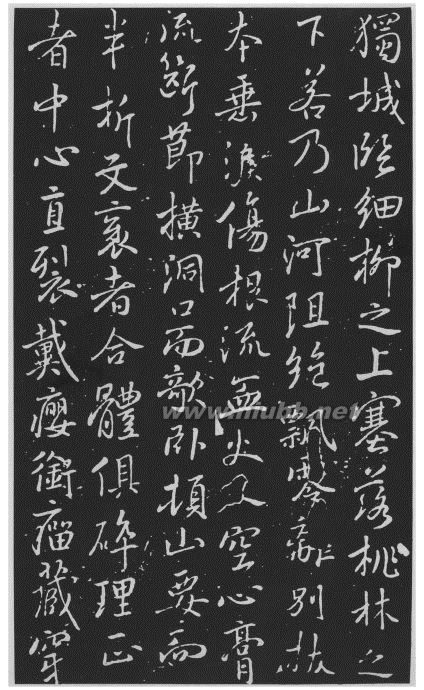 獨城臨細柳之上塞落桃林之
下若乃山河阻絕飄零離別拔
本垂淚傷根流血火入空心膏
流斷節橫洞口而敧臥頓山要而
半折文衺者合體俱碎理正
者中心直裂戴癭銜瘤藏穿